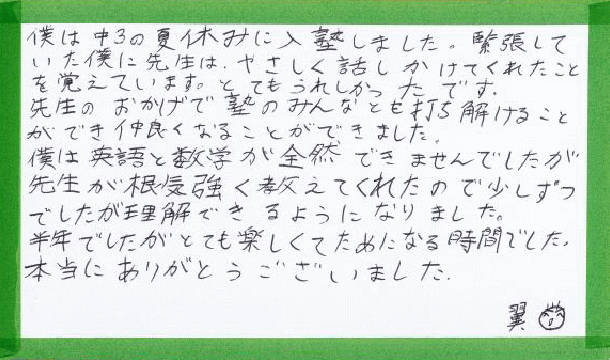 僕は中3の夏休みに入塾しました。緊張して
いた僕に先生は、やさしく話しかけてくれたこと
を覚えています。とてもうれしかったです。
先生のおかげで塾のみんなとも打ち解けること
ができ仲良くなることができました。
僕は英語と数学が全然できませんでしたが
先生が根気強く教えてくれたので少しずつ
でしたが理解できるようになりました。
半年でしたがとても楽しくてためになる時間でした。
本当にありがとうございました。
翼